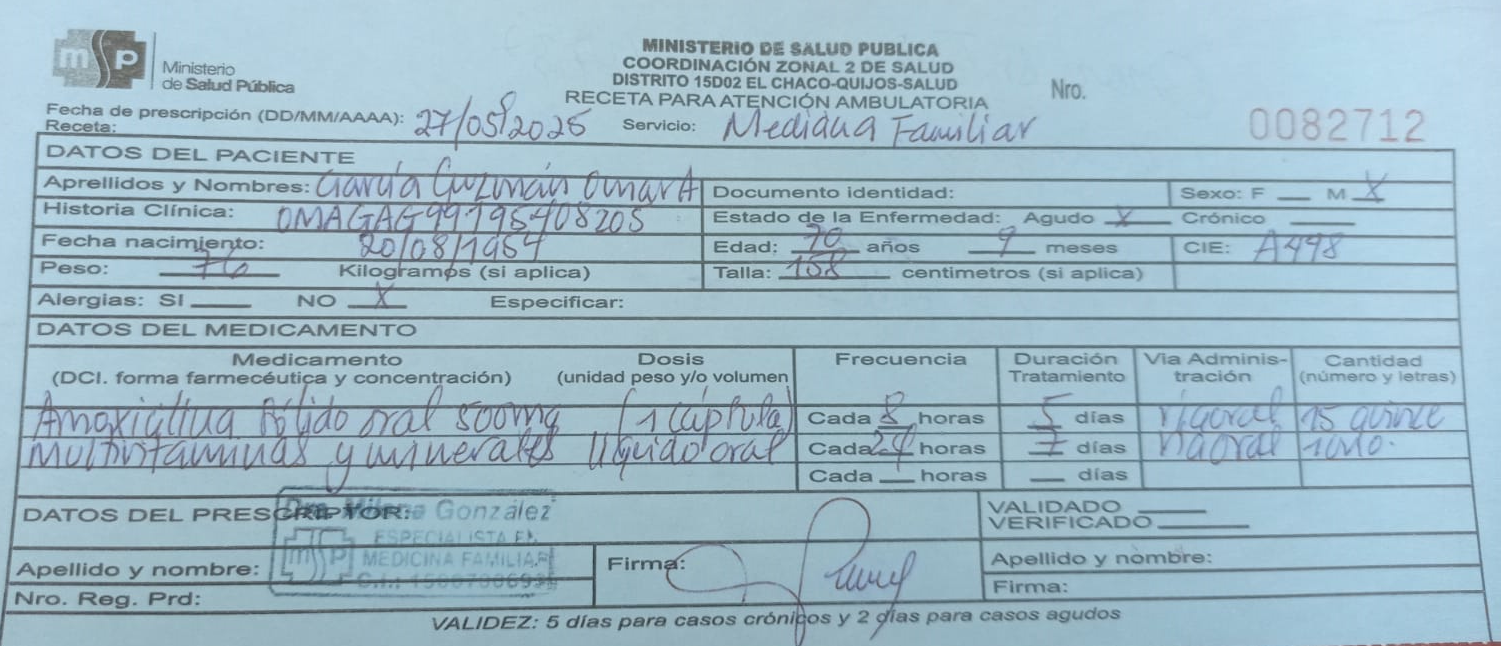 msp Ministerio
de Salud Pública
MINISTERIO DE SALUD PUBLICA
COORDINACIÓN ZONAL 2 DE SALUD
DISTRITO 15D02 EL CHACO-QUIJOS-SALUD
RECETA PARA ATENCIÓN AMBULATORIA
Nro.
0082712
Fecha de prescripción (DD/MM/AAAA): 27/05/2025
Receta:
Servicio: Medicina Familiar
DATOS DEL PACIENTE
Aprellidos y Nombres: García Guzmán Omar A Documento identidad: Sexo: F ___ M X
Historia Clínica: OMAGAG99195408205 Estado de la Enfermedad: Agudo X Crónico ___
Fecha nacimiento: 20/08/1954 Edad: 70 años 9 meses CIE: A498
Peso: 76 Kilogramos (si aplica) Talla: 158 centimetros (si aplica)
Alergias: SI ___ NO X Especificar:
DATOS DEL MEDICAMENTO
Medicamento Dosis Frecuencia Duración Via Adminis- Cantidad
(DCI. forma farmecéutica y concentración) (unidad peso y/o volumen Tratamiento tración (número y letras)
Amoxicilina sólido oral 500mg (1 cápsula) Cada 8 horas 5 días Vía oral 15 quince
Multivitaminas y minerales líquido oral Cada 24 horas 7 días Vía oral 1 uno.
Cada ___ horas ___ días
DATOS DEL PRESCRIPTOR:
González
ESPECIALISTA EN
msp MEDICINA FAMILIAR
VALIDADO ___
VERIFICADO ___
Apellido y nombre: Firma: Apellido y nombre:
Nro. Reg. Prd: Firma:
VALIDEZ: 5 días para casos crónicos y 2 días para casos agudos